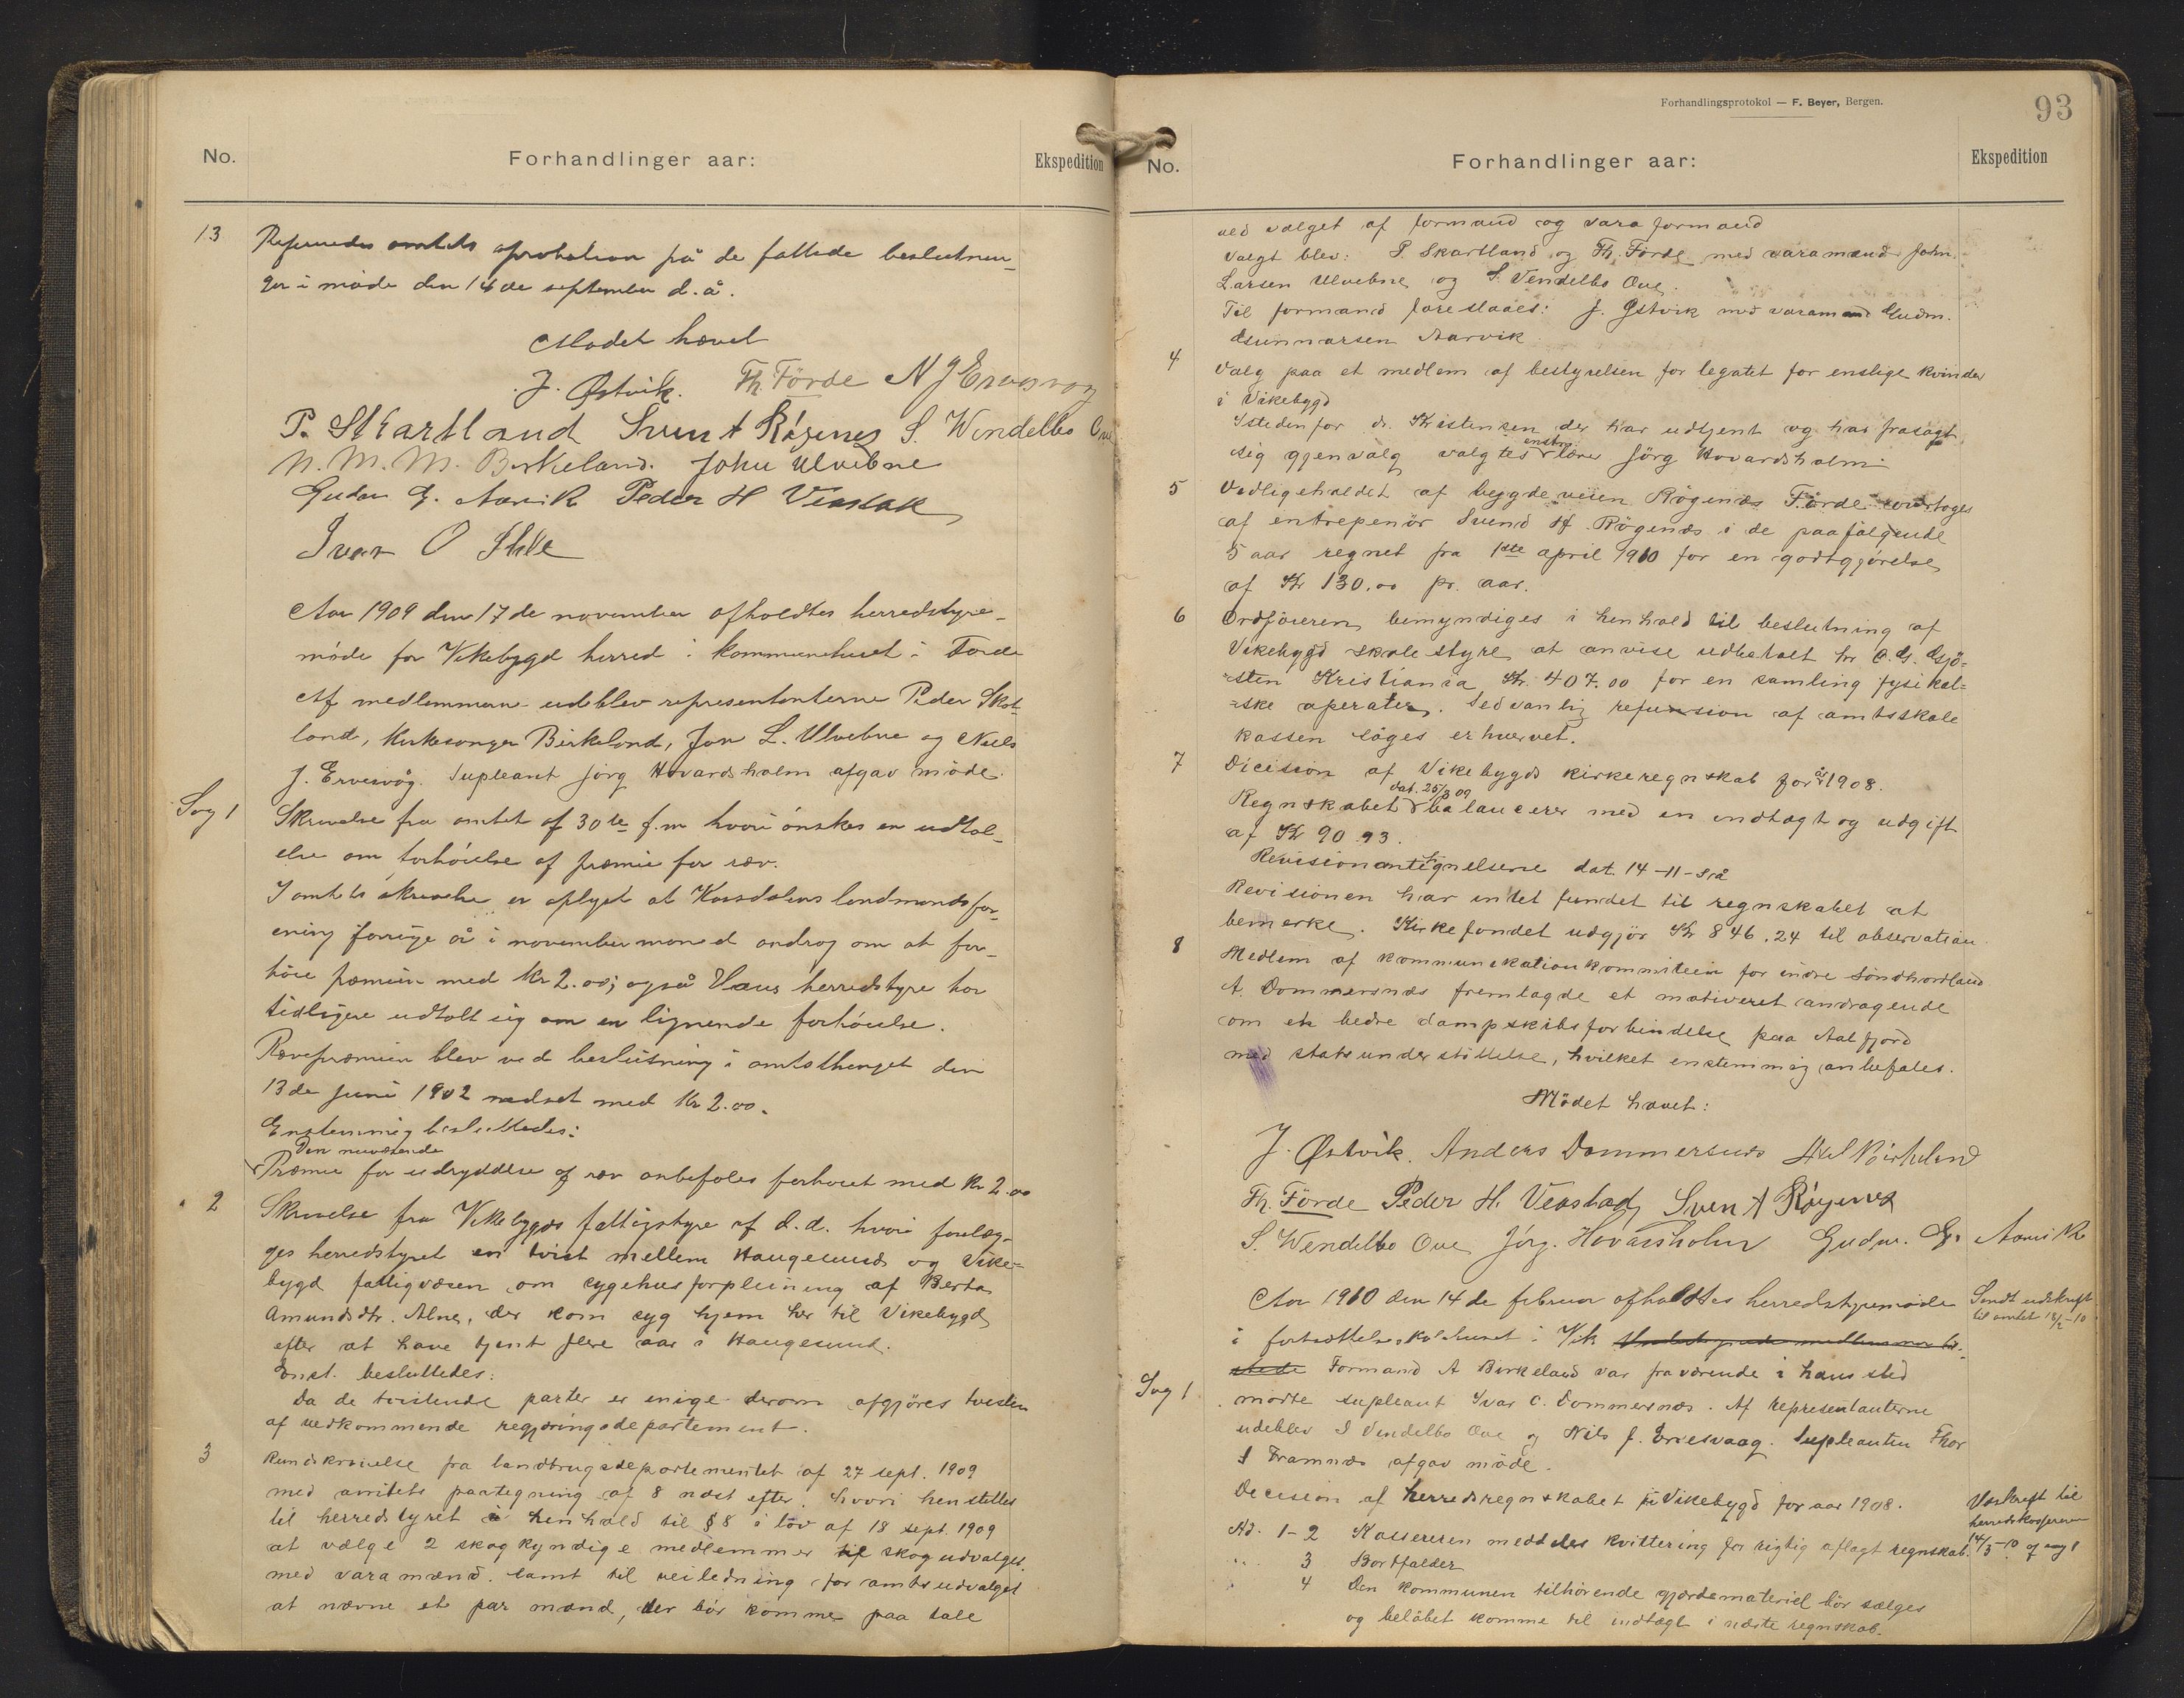 No.
Forhandlinger aar:
Ekspedition
13
Refereredes amtets aprobation på de fattede beslutnin-
ger i møde den 14de september d.å.
Mødet hævet
J. Østvik. Th. Førde N J Ervesvog
P. Skartland Svend A Røgenes S. Wendelbo Ove
N. M. M. Birkeland. John Ulvebne
Gudm G. Aarvik Peder H Veastad
Ivar O Ihle
Aar 1909 den 17de november afholdtes herredstyre-
møde for Vikebygd herred i kommunehuset i Førde
Af medlemmerne udeblev representanterne Peder Skart-
land, kirkesanger Birkeland, Jon L. Ulvebne og Niels
J. Ervesvåg. Supleant Jørg Hovardsholm afgav møde.
Sag 1
Skrivelse fra amtet af 30te f.m hvori ønskes en udtal-
else om forhøielse af præmie for ræv.
I amtets skrivelse er oplyst at Landmandsfor-
ening forrige år i november måned androg om at for-
høie præmien med kr 2.00; også Haus herredstyre har
tidligere udtalt sig om en lignende forhøielse.
Rævepræmien blev ved beslutning i amtsthinget den
13de juni 1902 nedsat med kr 2.00.
Enstemmig besluttedes:
Den nuværende
Præmie for udryddelse af ræv anbefales forhøiet med kr 2.00
2
Skrivelse fra Vikebygds fattigstyre af d.d. hvori forelæg-
ges herredstyret en tvist mellem Haugesunds og Vike-
bygd fattigvæsen om sygehusforpleining af Berta
Amundsdtr. Alne, der kom syg hjem her til Vikebygd
efter at have tjent flere aar i Haugesund.
Enst. besluttedes:
Da de tvistende parter er enige derom afgjøres tvisten
af vedkommende regjæringsdepartement.
3
Rundskrivelse fra landbrugsdepartementet af 27 sept. 1909
med amtets paategning af 8 næst efter. hvori henstilles
til herredstyret i henhold til § 8 i lov af 18 sept. 1909
at vælge 2 skogkyndige medlemmer til skogudvalget
med varamænd. Samt til veiledning for amtsudvalget
at nævne et par mænd, der bör komme paa tale
Forhandlingsprotokol — F. Beyer, Bergen.
93
No.
Forhandlinger aar:
Ekspedition
ved valget af formand og varaformand
Valgt blev: P. Skartland og Th. Förde med varamænd John
Larsen Ulvebne og S. Vendelbo Ove.
Til formand foreslaaes: J. Østvik med varamand Gudm.
Gunnarsen Aarvik
4
Valg paa et medlem af bestyrelsen for legatet for enslige kvinder
i Vikebygd
Istedenfor dr. Kristensen der har udtjent og har frasagt
enst.
sig gjenvalg valgtes lærer Jörg Hovardsholm
5
Vedligeholdet af bygdeveien Rögenæs Förde overtoges
af entrepenör Svend A. Rögenæs i de paafölgende
5 aar regnet fra 1ste april 1910 for en godtgjörelse
af Kr 130.00 pr. aar.
6
Ordföreren bemyndiges i henhold til beslutning af
Vikebygd skolestyre at anvise udbetalt hr O. G. Gjö-
sten Kristiania Kr. 407.00 for en samling fysikal-
ske aperater. Sedvanlig refusion af amtsskole
kassen söges erhvervet.
7
Dicision af Vikebygds kirkeregnskab for år 1908.
dat. 25/3 09
Regnskabet balancerer med en indtægt og udgift
af Kr 90.93.
Revisionantegnelserne dat. 14-11-då
Revisionen har intet fundet til regnskabet at
bemerke. Kirkefondet udgjör Kr 846.24 til observation
8
Medlem af kommunikationkommiteen for indre Söndhordland
A. Dommersnæs fremlagde et motiveret andragende
om en bedre dampskibsforbindelse paa Aalfjord
med statsunderstöttelse, hvilket enstemmig anbefales.
Mödet hævet:
J. Østvik. Anders Dommersnes Birkeland
Th. Förde Peder H. Veastad Sven A Røgenes
S. Wendelbo Ove Jörg. Hovarsholm Gudm. G. Aarvik
Aar 1910 den 14de februar afholdtes herredstyremøde
Sendt udskrift
til amtet 18/2-10
i fortsættelseskolehuset i Vik
Formand A Birkeland var fraværende i hans sted
Sag 1
mödte supleant Ivar C. Dommersnæs. Af representanterne
udeblev S Vendelbo Ove og Nils J. Ervesvaag. Supleanten Thor
S Framnæs afgav møde.
Decision af herredsregnskabet i Vikebygd for aar 1908.
Utskrift til
herredskassereren
14/3-10 af sag 1
Ad. 1-2 Kassereren meddeles kvittering for rigtig aflagt regnskab.
" 3 Bortfalder
" 4 Den kommunen tilhörende gjærdemateriel bör sælges
og belöbet komme til indtægt i næste regnskab.